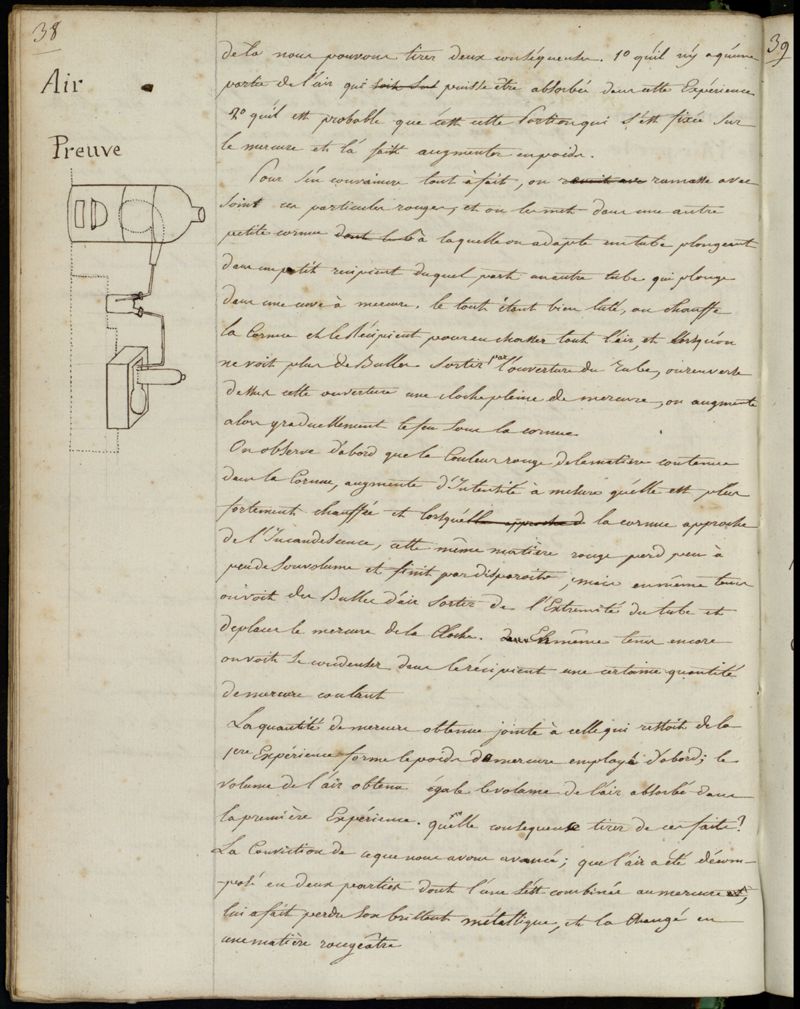 38
39
Air
Preuve
de la nous pouvons tirer deux conséquences. 1º quil n'y a qu'une
partie de l'air qui soit puisse être absorbée dans cette Expérience
2º quil est probable que cest cette Portion qui s'est fixée sur
le mercure et la fait augmenter en poids.
Pour s'en convaincre tout à fait, on ramasse avec
soint ces particules rouges, et on les met dans une autre
petite cornue à laquelle on adapte un tube plongeant
dans un petit recipient duquel part un autre tube qui plonge
dans une cuve à mercure. le tout étant bien luté, on chauffe
la Cornue et le Récipient pour en chasser tout l'air, et lorsqu'on
ne voit plus de Bulles sortir par l'ouverture du Tube, on renverse
dessus cette ouverture une cloche pleine de mercure, on augmente
alors graduellement le feu sous la cornue
On observe d'abord que la Couleur rouge de la matière contenue
dans la Cornue, augmente d'Intensité à mesure qu'elle est plus
fortement chauffée et lorsquelle approche d la cornue approche
de l'Incandescence, cette même matière rouge perd peu à
peu de son volume et finit par disparoitre, mais en même tems
on voit des Bulles d'air sortir de l'Extremité du tube et
deplacer le mercure de la Cloche. En même tems encore
on voit se condenser dans le récipient une certaine quantité
de mercure coulant
La quantité de mercure obtenue jointe à celle qui restoit de la
1ere Expérience forme le poids de mercure employé d'abord; le
volume de l'air obtenu égale le volume de l'air absorbé dans
la première Expérience. quelle consequence tirer de ces faits?
La Conviction de ce que nous avons avancé; que l'air a été décom-
-posé en deux parties dont l'une s'est combinée au mercure,
lui a fait perdre son brillant métallique, et la Changé en
une matière rougeâtre